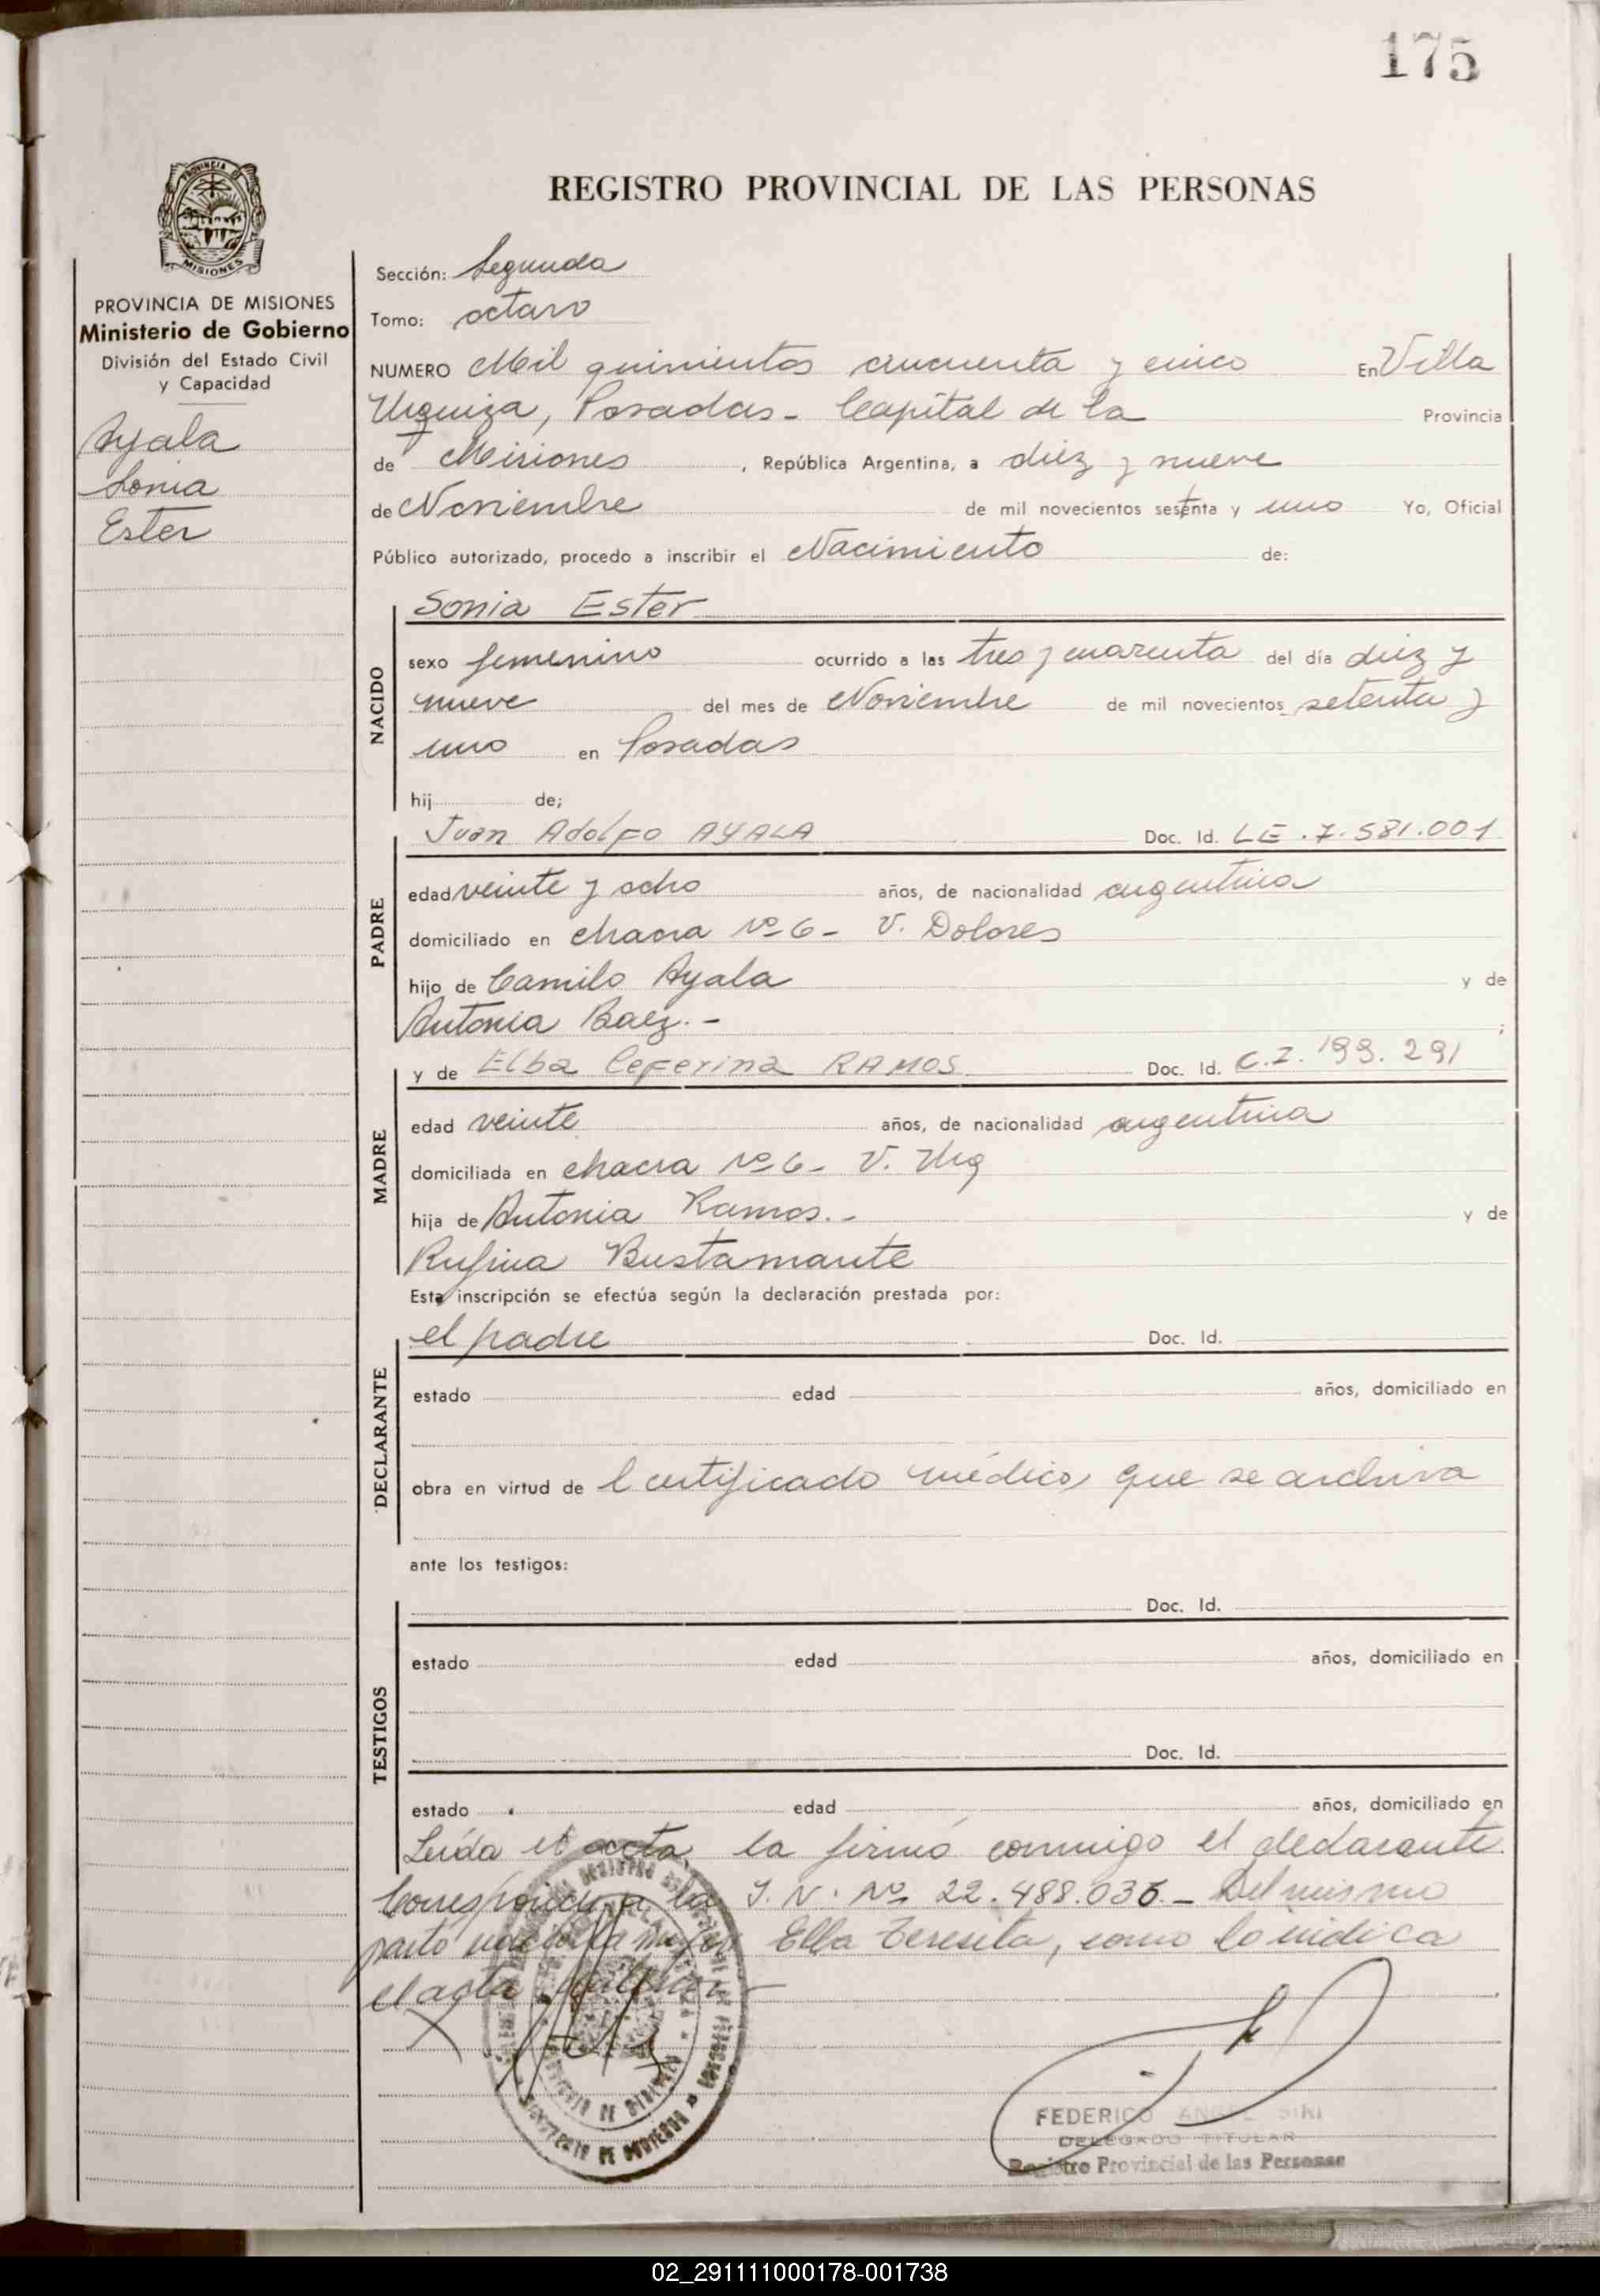 175
PROVINCIA DE
MISIONES
REGISTRO PROVINCIAL DE LAS PERSONAS
PROVINCIA DE MISIONES
Ministerio de Gobierno
División del Estado Civil
y Capacidad
Ayala
Sonia
Ester
Sección: Segunda
Tomo: octavo
NUMERO Mil quinientos cincuenta y cinco En Villa
Urquiza, Posadas - Capital de la Provincia
de Misiones, República Argentina, a diez y nueve
de Noviembre de mil novecientos setenta y uno Yo, Oficial
Público autorizado, procedo a inscribir el Nacimiento de:
NACIDO
Sonia Ester
sexo femenino ocurrido a las tres y cuarenta del día diez y
nueve del mes de Noviembre de mil novecientos setenta y
uno en Posadas
hij de;
PADRE
Juan Adolfo AYALA Doc. Id. LE. 7.581.001
edad veinte y ocho años, de nacionalidad argentina
domiciliado en chacra Nº 6 - V. Dolores
hijo de Camilo Ayala y de
Antonia Baez. - ;
MADRE
y de Elba Ceferina RAMOS Doc. Id. C.I. 199.291
edad veinte años, de nacionalidad argentina
domiciliada en chacra Nº 6 - V. Urq
hija de Antonia Ramos. - y de
Rufina Bustamante
Esta inscripción se efectúa según la declaración prestada por:
DECLARANTE
el padre Doc. Id.
estado edad años, domiciliado en
obra en virtud de l certificado médico, que se archiva
ante los testigos:
TESTIGOS
Doc. Id.
estado edad años, domiciliado en
Doc. Id.
estado edad años, domiciliado en
Leída el acta, la firmó conmigo el declarante.
Corresponde a la I. N. Nº 22.488.036 - Del mismo
parto nació la Ella Teresita, como lo indica
el acta
FEDERICO ANGEL SIRI
DELEGADO TITULAR
Registro Provincial de las Personas
02_291111000178-001738